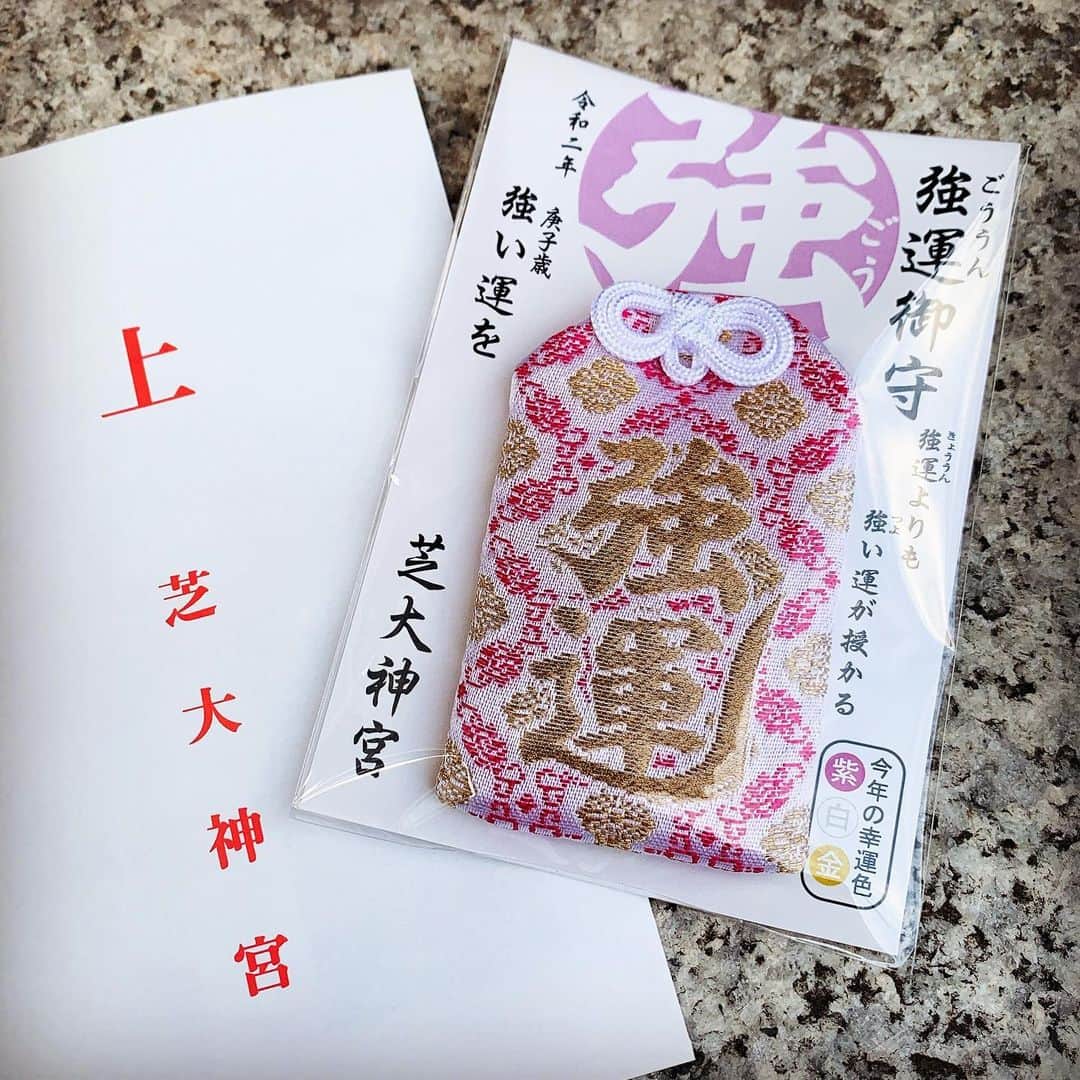 上
芝大神宮
強運御守
ごううん
強運よりも
きょううん
強い運が授かる
つよ
強
ごう
令和二年
庚子歳
強い運を
芝大神宮
強運
今年の幸運色
紫
白
金